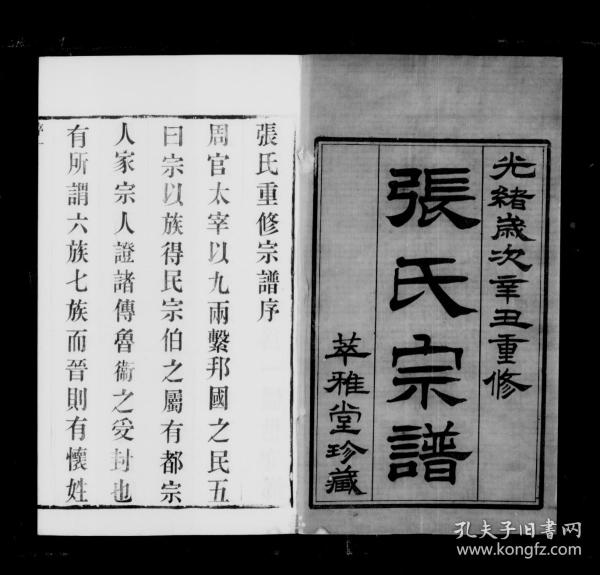 光緒歲次辛丑重修
張氏宗譜
萃雅堂珍藏
張氏重修宗譜序
周官太宰以九兩繫邦國之民五
曰宗以族得民宗伯之屬有都宗
人家宗人證諸傳魯衞之受封也
有所謂六族七族而晉則有懷姓
孔夫子旧書网
www.kongfz.com